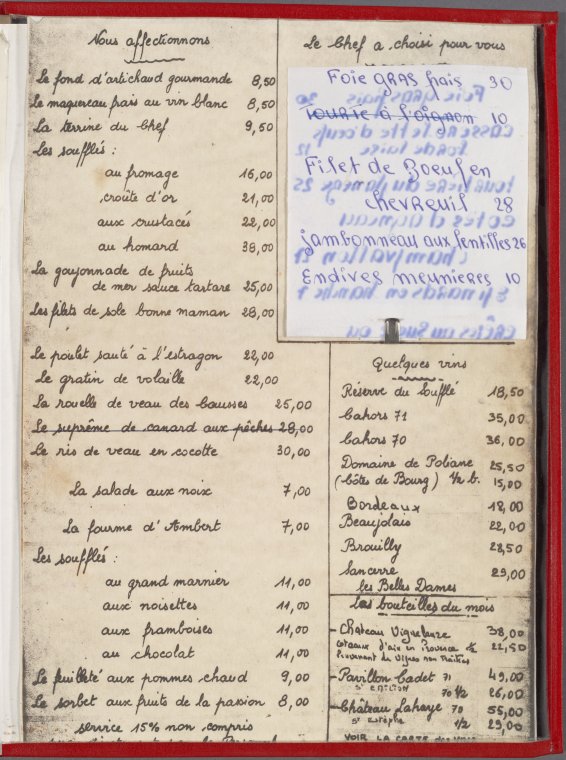 Nous affectionnons
Le fond d'artichaud gourmande 8,50
Le maquereau frais au vin blanc 8,50
La terrine du Chef 9,50
Les soufflés :
au fromage 16,00
croûte d'or 21,00
aux crustacés 22,00
au homard 38,00
La goujonnade de fruits
de mer sauce tartare 25,00
Les filets de sole bonne maman 28,00
Le poulet sauté à l'estragon 22,00
Le gratin de volaille 22,00
La rouelle de veau des Causses 25,00
Le suprême de canard aux pêches 28,00
Le ris de veau en cocotte 30,00
La salade aux noix 7,00
La fourme d'Ambert 7,00
Les soufflés :
au grand marnier 11,00
aux noisettes 11,00
aux framboises 11,00
au chocolat 11,00
Le feuilleté aux pommes chaud 9,00
Le sorbet aux fruits de la passion 8,00
service 15% non compris
Le Chef a choisi pour vous
Foie gras frais 30
Tourte à l'oignon 10
Filet de Boeuf en
chevreuil 28
jambonneau aux lentilles 26
Endives meunieres 10
Quelques vins
Réserve du Soufflé 18,50
Cahors 71 35,00
Cahors 70 36,00
Domaine de Poliane 25,50
(Côtes de Bourg) ½ b. 15,00
Bordeaux 18,00
Beaujolais 22,00
Brouilly 28,50
Sancerre 29,00
les Belles Dames
Les bouteilles du mois
- Château Vignelaure 38,00
coteaux d'aix en Provence ½ 22,50
Provenant de Vignes non Traitées
- Pavillon Cadet 71 49,00
St EMILION 70 ½ 26,00
- Château Lahaye 70 55,00
St Estèphe ½ 29,00
VOIR LA CARTE des vins